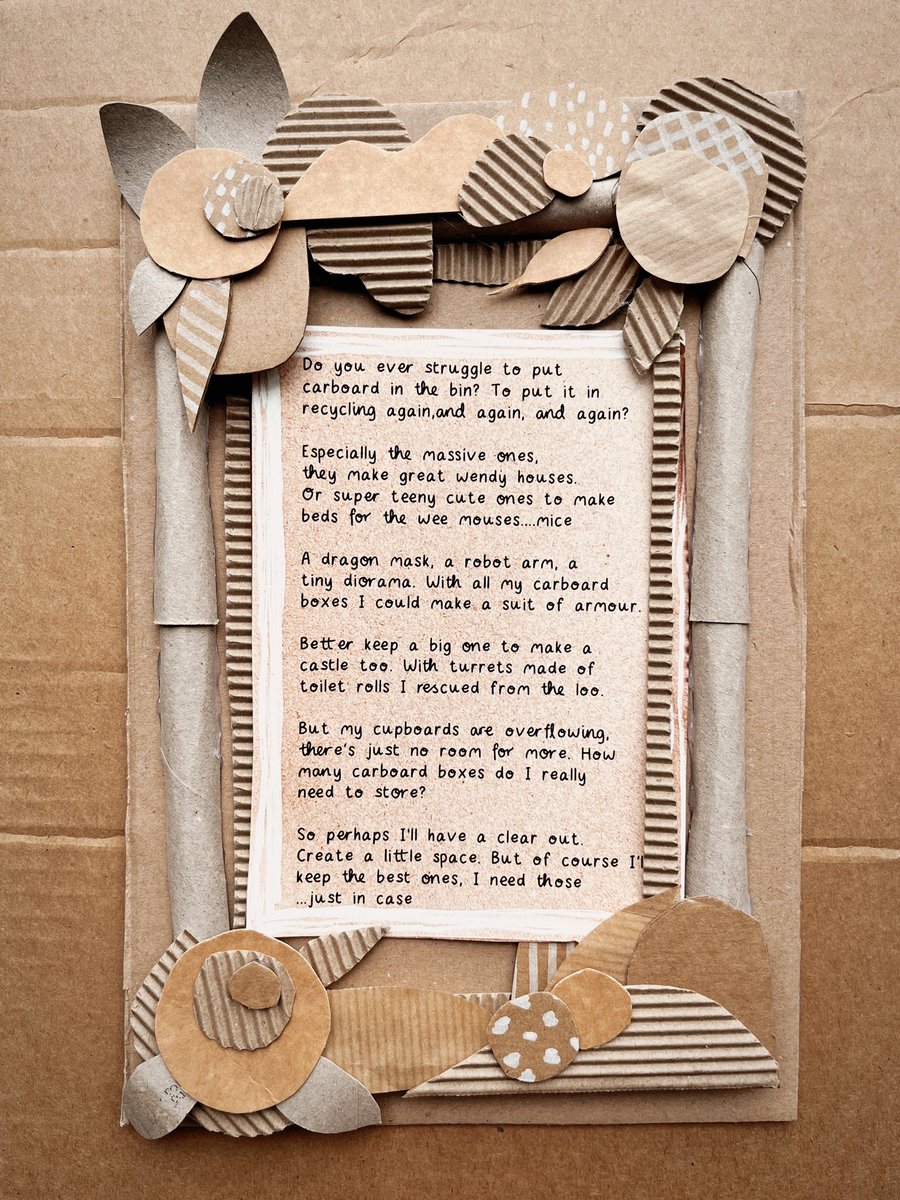 Do you ever struggle to put
carboard in the bin? To put it in
recycling again,and again, and again?
Especially the massive ones,
they make great wendy houses.
Or super teeny cute ones to make
beds for the wee mouses....mice
A dragon mask, a robot arm, a
tiny diorama. With all my carboard
boxes I could make a suit of armour.
Better keep a big one to make a
castle too. With turrets made of
toilet rolls I rescued from the loo.
But my cupboards are overflowing,
there's just no room for more. How
many carboard boxes do I really
need to store?
So perhaps I'll have a clear out.
Create a little space. But of course I'l
keep the best ones, I need those
...just in case